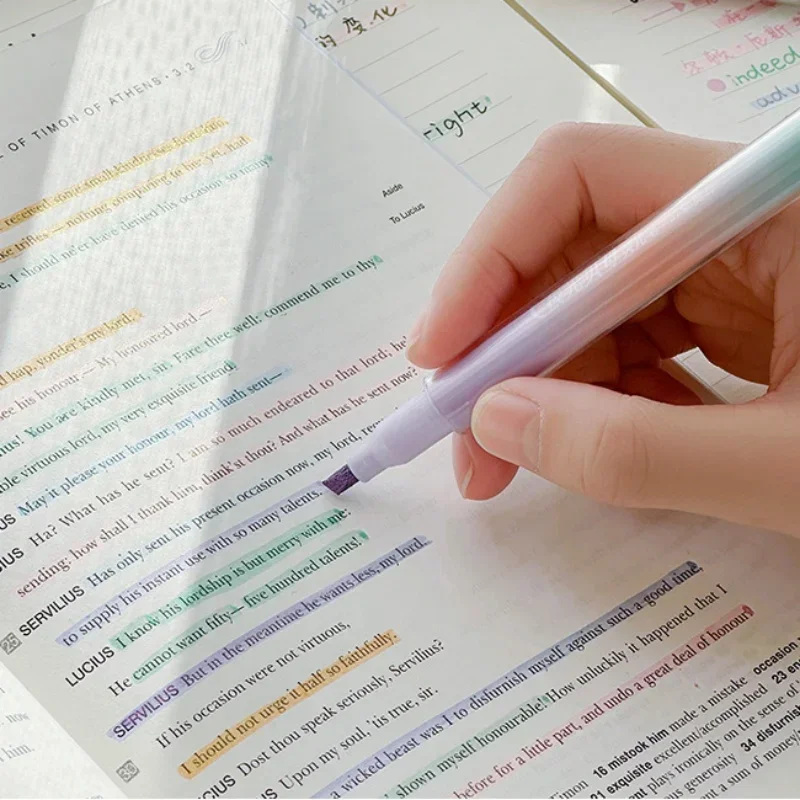 的变化
right
indeed
OF TIMON OF ATHENS · 3.2
received some small kindnesses from him,
trifles — nothing comparing to his; yet, had
, I should ne'er have denied his occasion so many
Aside
To Lucius
hap, yonder's my lord;
see his honour. — My honoured lord —
You are kindly met, sir. Fare thee well: commend me to thy
virtuous lord, my very exquisite friend.
May it please your honour, my lord hath sent —
Ha? What has he sent? I am so much endeared to that lord; he
sending: how shall I thank him, think'st thou? And what has he sent now?
SERVILIUS Has only sent his present occasion now, my lord,
to supply his instant use with so many talents.
LUCIUS I know his lordship is but merry with me:
He cannot want fifty — five hundred talents!
SERVILIUS But in the meantime he wants less, my lord.
If his occasion were not virtuous,
I should not urge it half so faithfully.
Dost thou speak seriously, Servilius?
Upon my soul, 'tis true, sir.
a wicked beast was I to disfurnish myself against such a good time,
shown myself honourable! How unluckily it happened that I
before for a little part, and undo a great deal of honour!
25
30
Timon 16 mistook him made a mistake occasion
21 exquisite excellent/accomplished 23
plays ironically on the sense of
generosity 34 disfurnish
a sum of money
now
him.